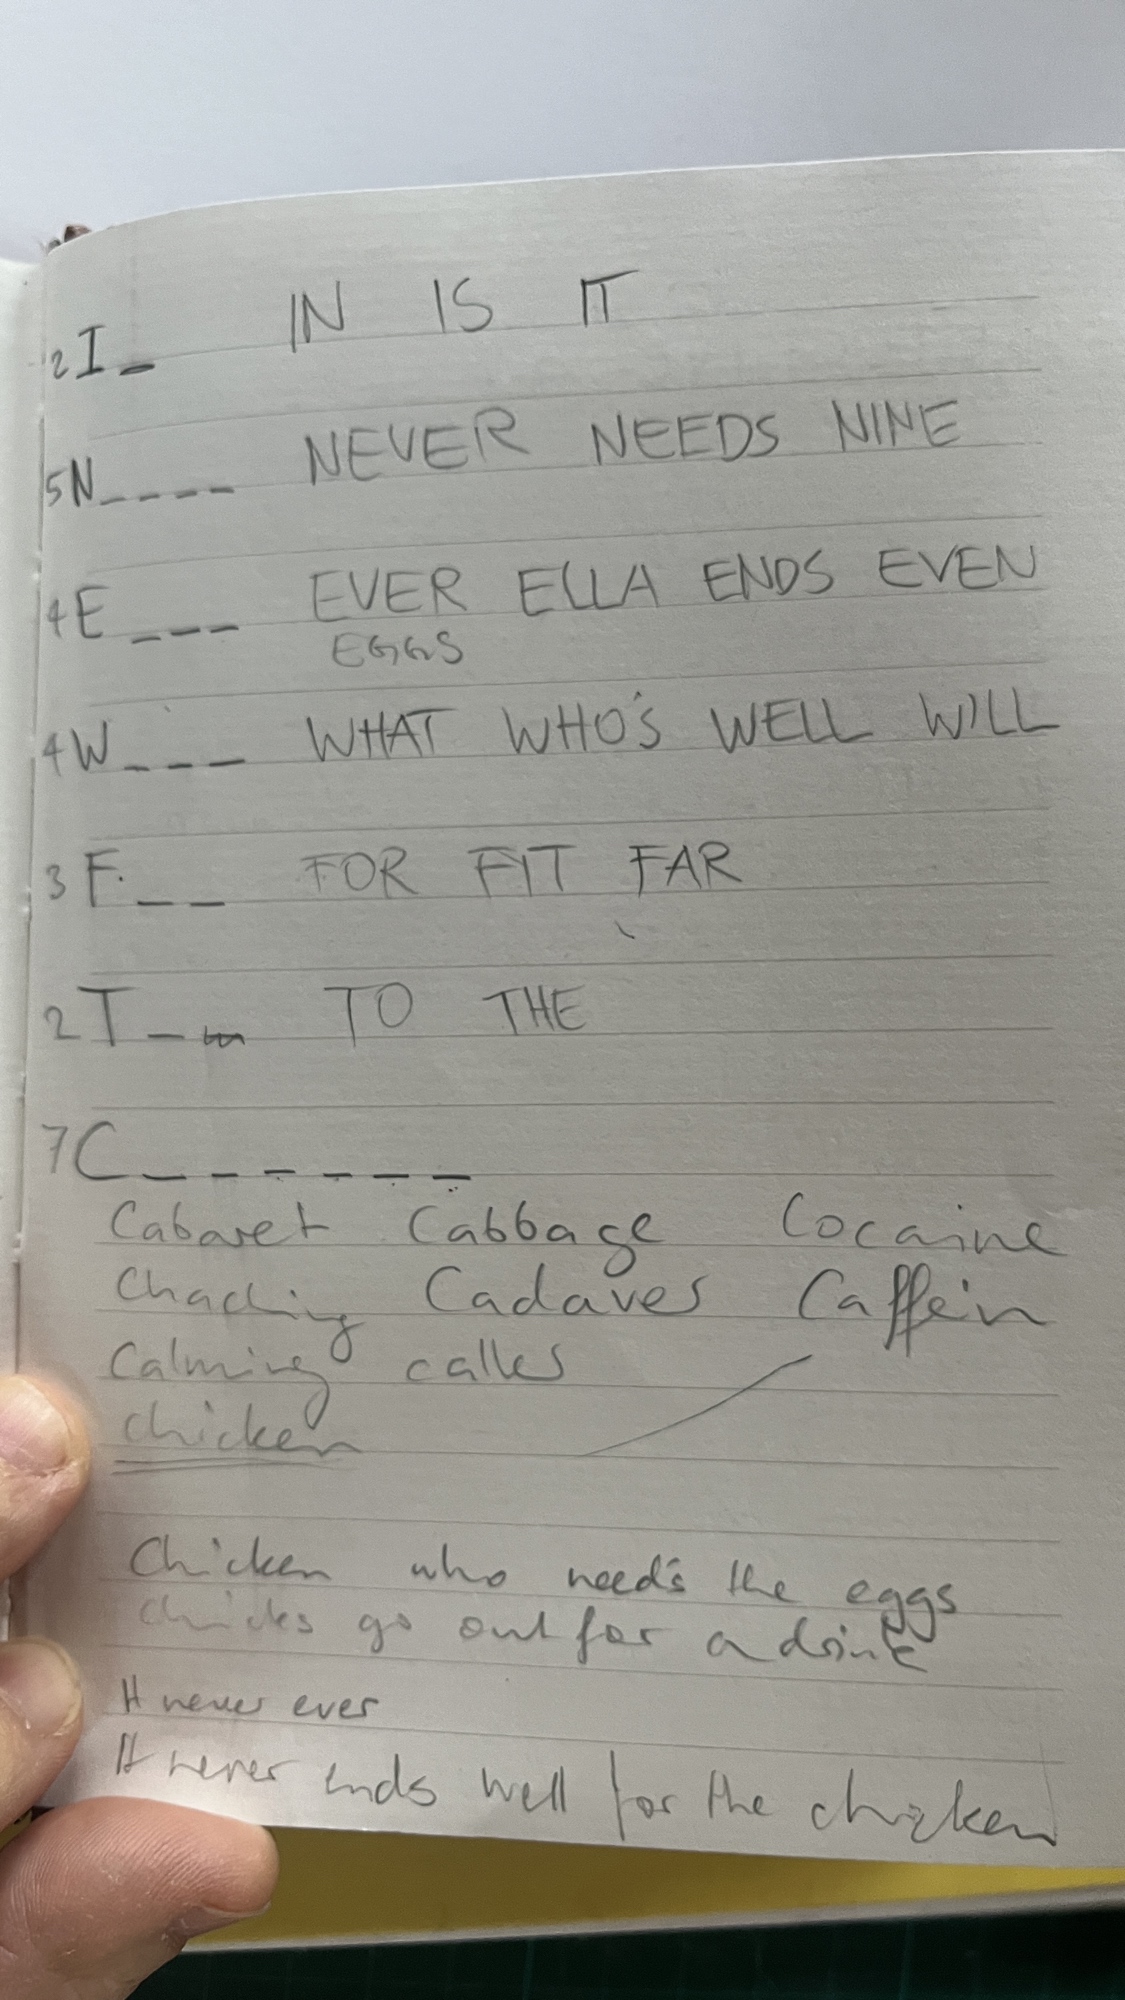 2 I _ IN IS IT
5 N _ _ _ _ NEVER NEEDS NINE
4 E _ _ _ EVER ELLA ENDS EVEN
EGGS
4 W _ _ _ WHAT WHO'S WELL WILL
3 F _ _ FOR FIT FAR
2 T _ _ TO THE
7 C _ _ _ _ _ _
Cabaret Cabbage Cocaine
Cadaves Caffein
Calming calles
chicken
Chicken who needs the eggs
chicks go out for a drink
It never ever
It never ends well for the chicken